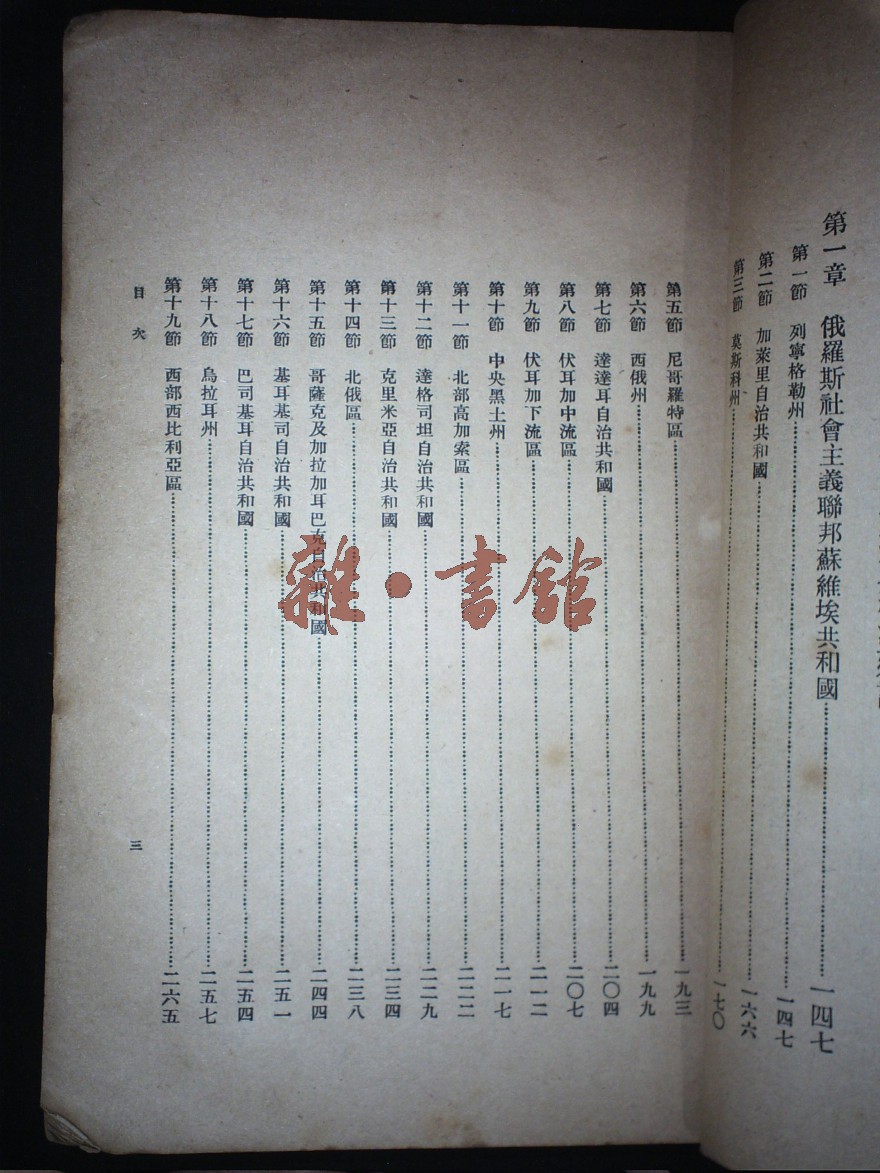 第一章　俄羅斯社會主義聯邦蘇維埃共和國……一四七
第一節　列寧格勒州……一四七
第二節　加萊里自治共和國……一六六
第三節　莫斯科州……一七〇
第五節　尼哥羅特區……一九三
第六節　西俄州……一九九
第七節　達達耳自治共和國……二〇四
第八節　伏耳加中流區……二〇七
第九節　伏耳加下流區……二一二
第十節　中央黑土州……二一七
第十一節　北部高加索區……二二二
第十二節　達格司坦自治共和國……二二九
第十三節　克里米亞自治共和國……二三四
第十四節　北俄區……二三八
第十五節　哥薩克及加拉加耳巴克自治共和國……二四四
第十六節　基耳基司自治共和國……二五一
第十七節　巴司基耳自治共和國……二五四
第十八節　烏拉耳州……二五七
第十九節　西部西比利亞區……二六五
目次
三
雜·書館